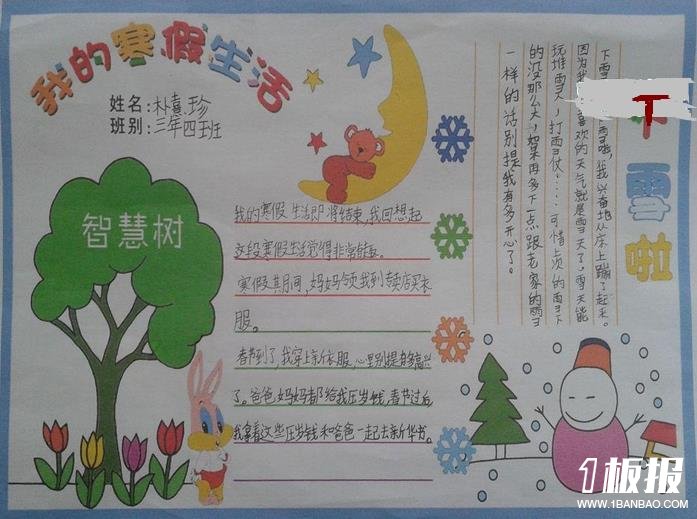 我的寒假生活
姓名:朴喜珍
班别:三年四班
智慧树
我的寒假生活即将结束,我回想起
这段寒假生活觉得非常
寒假其间,妈妈领我到专卖店买衣
服。
春节到了,我穿上新衣服,心里别提多高兴
了。爸爸妈妈都给我压岁钱,春节过后
我拿着这些压岁钱和爸爸一起去新华书。
下雪啦
下雪 下雪啦,我兴奋地从床上蹦了起来。
因为我 喜欢的天气就是雪天了,雪天能
玩堆雪人,打雪仗……可惜上次的雪下
的没那么大,如果再多下一点跟老家的雪
一样的话别提我有多开心了。
1板报
WWW.1BANBAO.COM